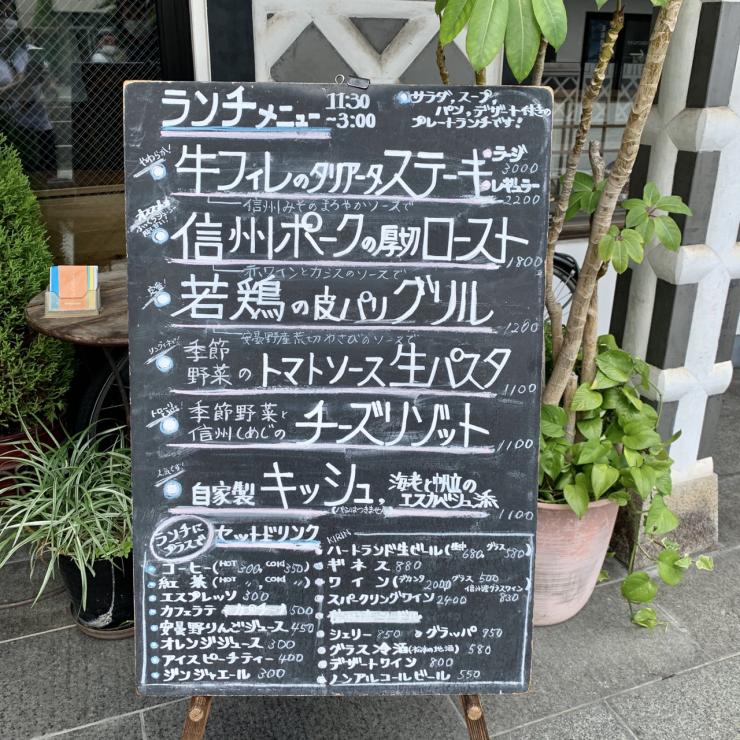 ランチメニュー 11:30 ~3:00
サラダ、スープ、
パン、デザート付きの
プレートランチです!
やわらか!
牛フィレのタリアータステーキ ラージ 3000 レギュラー 2200
信州みそのまろやかソースで
信州ポークの厚切ロースト 1800
赤ワインとカシスのソースで
定番!
若鶏の皮パリグリル 1200
安曇野産荒切わさびのソースで
季節野菜の トマトソース生パスタ 1100
季節野菜と信州しめじの チーズリゾット 1100
人気です!
自家製 キッシュ、海老と帆立のエスカベッシュ添 1100
(パンはつきません)
ランチにプラスで セットドリンク
コーヒー(HOT 300, COLD 350)
紅茶(HOT 〃, COLD 〃)
エスプレッソ 300
カフェラテ 500
安曇野りんごジュース 450
オレンジジュース 300
アイスピーチティー 400
ジンジャエール 300
KIRIN
ハートランド生ビール(生中 680, グラス 580)
ギネス 880
ワイン(デカンタ 2000 グラス 500
信州産グラスワイン 830
スパークリングワイン 2400
シェリー 850 グラッパ 950
グラス冷酒(松本の地酒) 580
デザートワイン 800
ノンアルコールビール 550